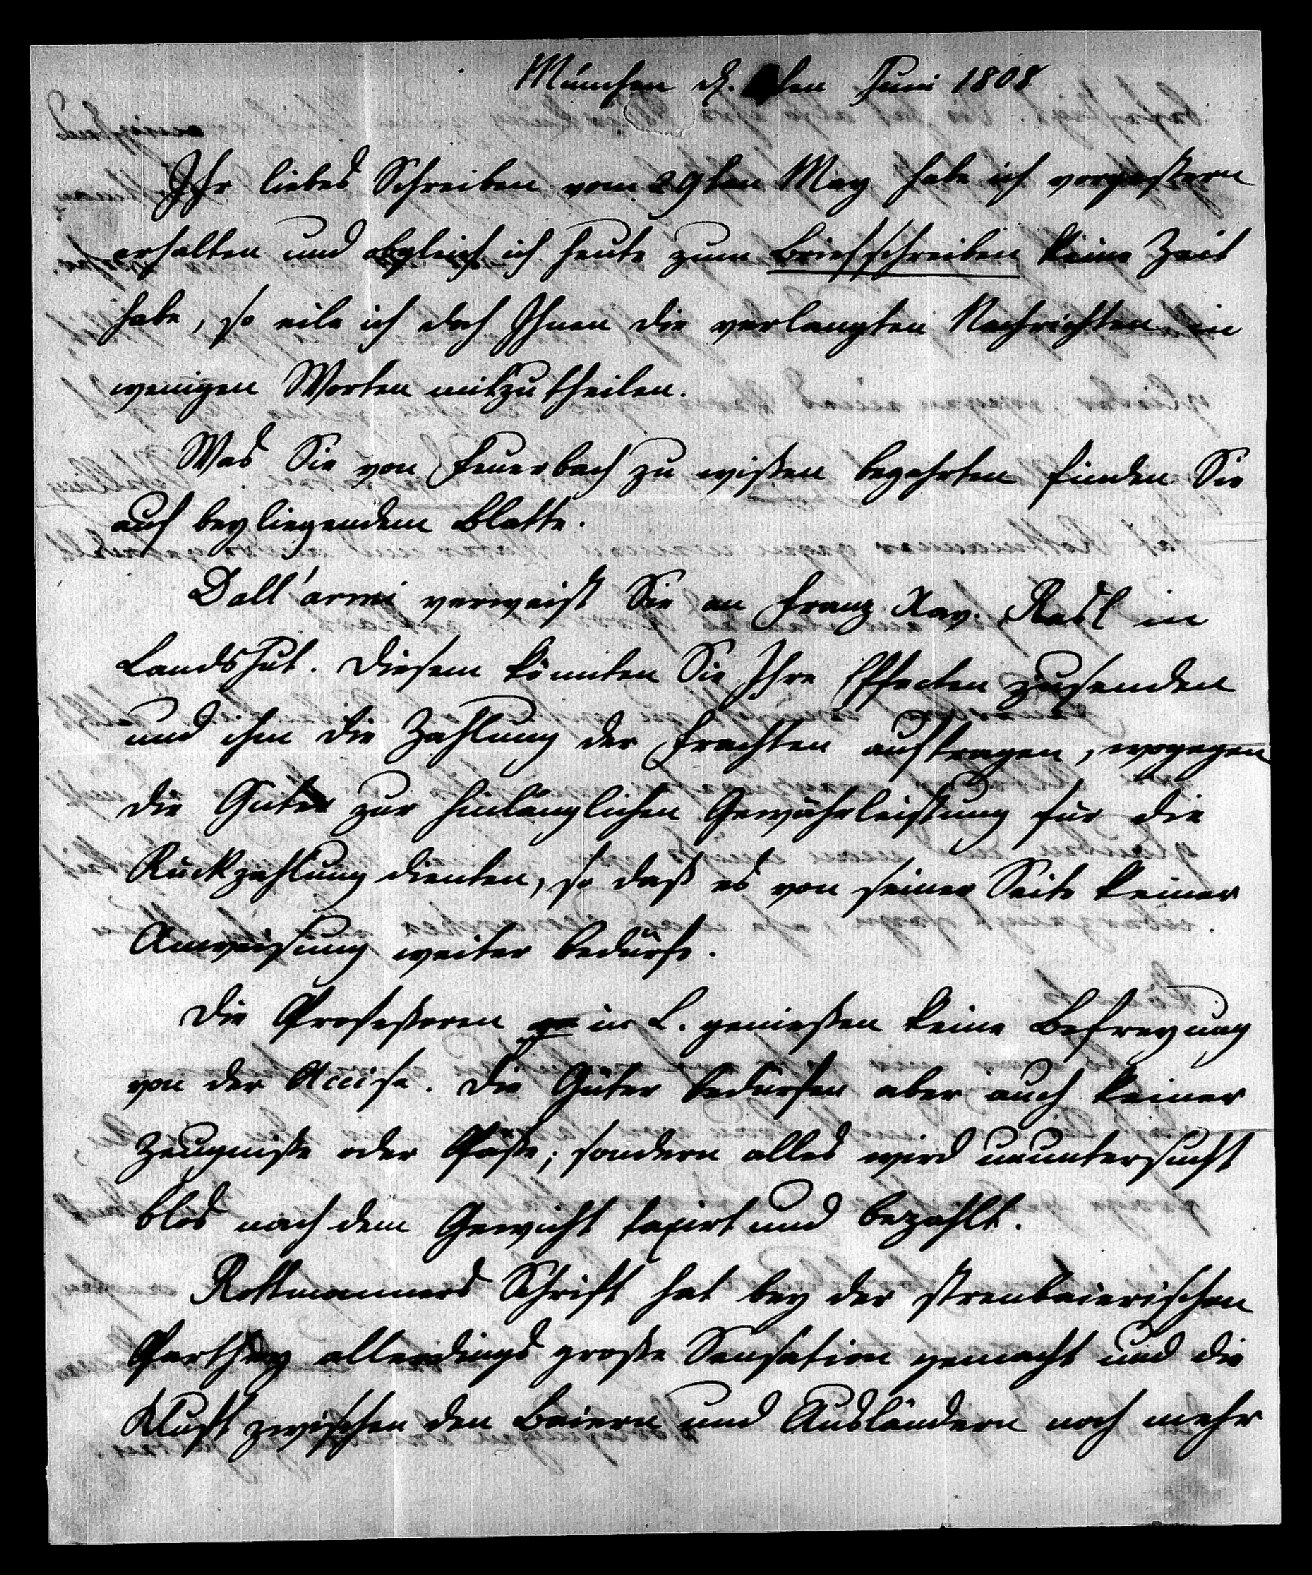 München d. ten Juni 1808
Ihr liebes Schreiben vom 29ten May habe ich vorgestern
erhalten und obgleich ich heute zum Briefschreiben keine Zeit
habe, so eile ich doch Ihnen die verlangten Nachrichten in
wenigen Worten mitzutheilen.
Was Sie von Feuerbach zu wißen begehrten finden Sie
auf beyliegendem Blatte.
Dall'armi verweist Sie an Franz Xav. in
Landshut. Diesem könnten Sie Ihre Effecten zusenden
und ihm die Zahlung der Frachten auftragen, wogegen
die Güter zur hinlänglichen Gewährleistung für die
Rückzahlung dienten, so daß es von seiner Seite keiner
Anweisung weiter bedürfe.
Die Profeßoren in L. genießen keine Befreyung
von der Accise. Die Güter bedürfen aber auch keiner
Zeugniße oder Päße; sondern alles wird ununtersucht
blos nach dem Gewicht taxirt und bezahlt.
Rottmanners Schrift hat bey der strenbaierischen
Parthey allerdings große Sensation gemacht und die
Kluft zwischen den Baiern und Ausländern noch mehr